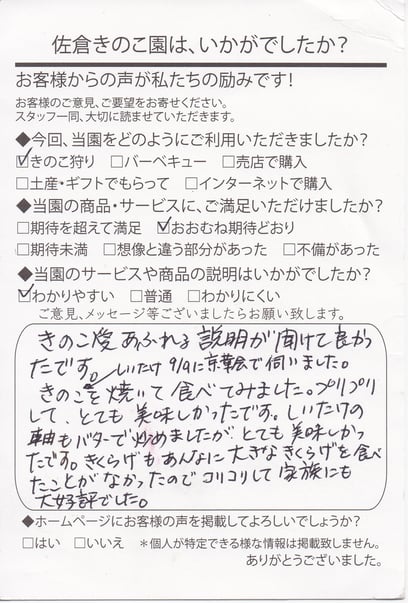 佐倉きのこ園は、いかがでしたか?
お客様からの声が私たちの励みです!
お客様のご意見、ご要望をお寄せください。
スタッフ一同、大切に読ませていただきます。
◆今回、当園をどのようにご利用いただきましたか?
☑きのこ狩り □バーベキュー □売店で購入
□土産・ギフトでもらって □インターネットで購入
◆当園の商品・サービスに、ご満足いただけましたか?
□期待を超えて満足 ☑おおむね期待どおり
□期待未満 □想像と違う部分があった □不備があった
◆当園のサービスや商品の説明はいかがでしたか?
☑わかりやすい □普通 □わかりにくい
ご意見、メッセージ等ございましたらお願い致します。
きのこ愛あふれる説明が聞けて良かっ
たです。 9/4に京葉会で伺いました。
しいたけ
きのこを焼いて食べてみました。プリプリ
して、とても美味しかったです。しいたけの
軸もバターで炒めましたが、とても美味しかっ
たです。きくらげもあんなに大きなきくらげを食べ
たことがなかったのでコリコリして家族にも
大好評でした。
◆ホームページにお客様の声を掲載してよろしいでしょうか?
□はい □いいえ *個人が特定できる様な情報は掲載致しません。
ありがとうございました。